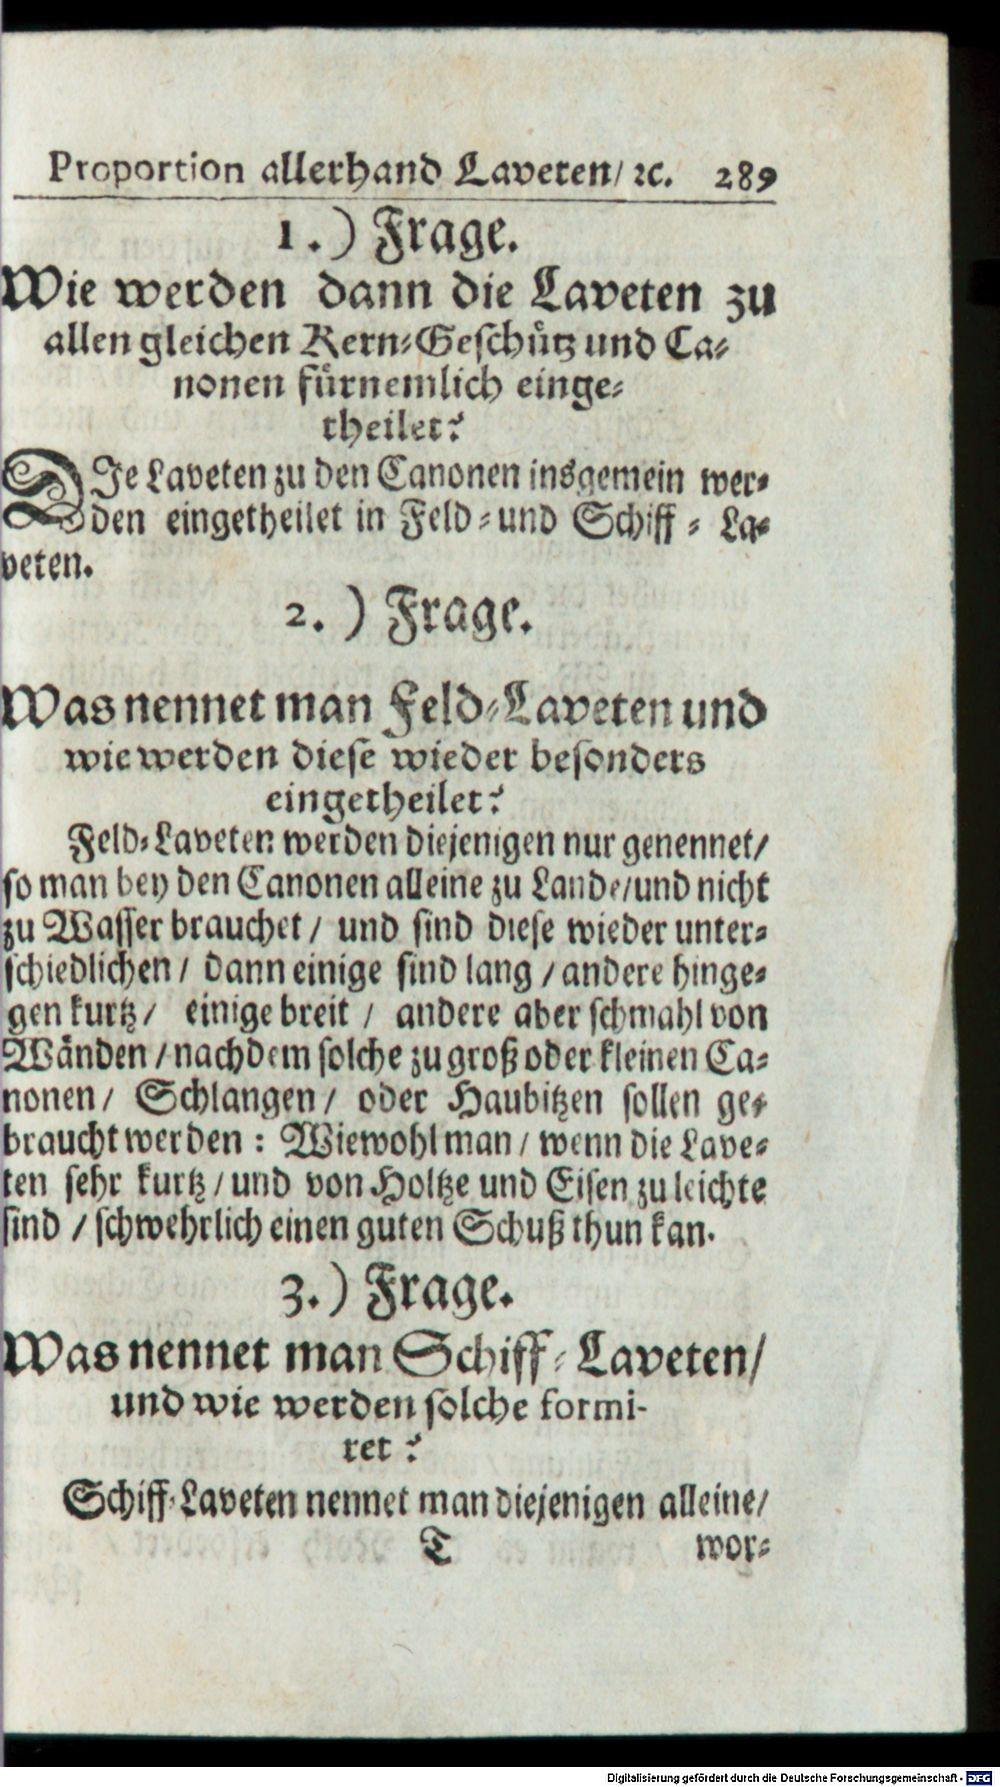 Proportion allerhand Laveten/ ꝛc. 289
1.) Frage.
Wie werden dann die Laveten zu
allen gleichen Kern-Geschütz und Ca-
nonen fürnemlich einge-
theilet?
DIe Laveten zu den Canonen insgemein wer-
den eingetheilet in Feld- und Schiff- La-
veten.
2.) Frage.
Was nennet man Feld-Laveten und
wie werden diese wieder besonders
eingetheilet?
Feld-Laveten werden diejenigen nur genennet/
so man bey den Canonen alleine zu Lande/ und nicht
zu Wasser brauchet/ und sind diese wieder unter-
schiedlichen/ dann einige sind lang/ andere hinge-
gen kurtz/ einige breit/ andere aber schmahl von
Wänden/ nachdem solche zu groß oder kleinen Ca-
nonen/ Schlangen/ oder Haubitzen sollen ge-
braucht werden: Wiewohl man/ wenn die Lave-
ten sehr kurtz/ und von Holtze und Eisen zu leichte
sind/ schwehrlich einen guten Schuß thun kan.
3.) Frage.
Was nennet man Schiff-Laveten/
und wie werden solche formi-
ret?
Schiff-Laveten nennet man diejenigen alleine/
T wor-
Digitalisierung gefördert durch die Deutsche Forschungsgemeinschaft - DFG